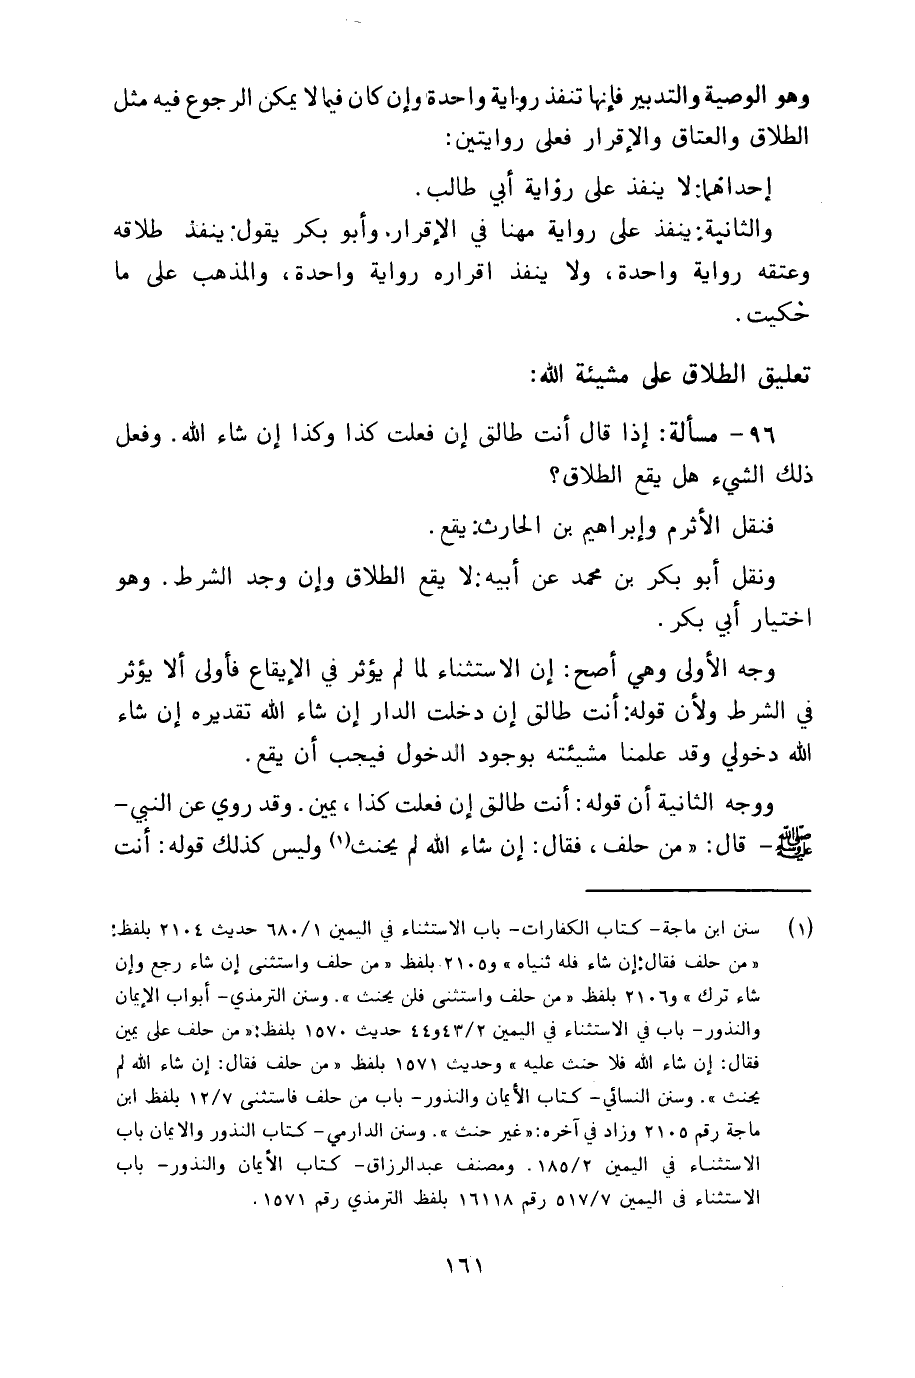 وهو الوصية والتدبير فإنها تنفذ رواية واحدة وإن كان فيما لا يمكن الرجوع فيه مثل
الطلاق والعتاق والإقرار فعلى روايتين:
إحداهما: لا ينفذ على رؤاية أبي طالب.
والثانية: ينفذ على رواية مهنا في الإقرار. وأبو بكر يقول: ينفذ طلاقه
وعتقه رواية واحدة، ولا ينفذ اقراره رواية واحدة، والمذهب على ما
حُكيت.
تعليق الطلاق على مشيئة الله:
٩٦- مسألة: إذا قال أنت طالق إن فعلت كذا وكذا إن شاء الله. وفعل
ذلك الشيء هل يقع الطلاق؟
فنقل الأثرم وإبراهيم بن الحارث: يقع.
ونقل أبو بكر بن محمد عن أبيه: لا يقع الطلاق وإن وجد الشرط. وهو
اختيار أبي بكر.
وجه الأولى وهي أصح: إن الاستثناء لما لم يؤثر في الإيقاع فأولى ألا يؤثر
في الشرط ولأن قوله: أنت طالق إن دخلت الدار إن شاء الله تقديره إن شاء
الله دخولي وقد علمنا مشيئته بوجود الدخول فيجب أن يقع.
ووجه الثانية أن قوله: أنت طالق إن فعلت كذا، يمين. وقد روي عن النبي-
ﷺ- قال: «من حلف، فقال: إن شاء الله لم يحنث(١) وليس كذلك قوله: أنت
(١) سنن ابن ماجة- كتاب الكفارات- باب الاستثناء في اليمين ٦٨٠/١ حديث ٢١٠٤ بلفظ:
«من حلف فقال: إن شاء فله ثنياه» و٢١٠٥ بلفظ «من حلف واستثنى إن شاء رجع وإن
شاء ترك» و٢١٠٦ بلفظ «من حلف واستثنى فلن يحنث». وسنن الترمذي- أبواب الإيمان
والنذور- باب في الاستثناء في اليمين ٤٣/٢و٤٤ حديث ١٥٧٠ بلفظ: «من حلف على يمين
فقال: إن شاء الله فلا حنث عليه» وحديث ١٥٧١ بلفظ «من حلف فقال: إن شاء الله لم
يحنث». وسنن النسائي- كتاب الأيمان والنذور- باب من حلف فاستثنى ١٢/٧ بلفظ ابن
ماجة رقم ٢١٠٥ وزاد في آخره: «غير حنث». وسنن الدارمي- كتاب النذور والايمان باب
الاستثناء في اليمين ١٨٥/٢. ومصنف عبدالرزاق- كتاب الأيمان والنذور- باب
الاستثناء في اليمين ٥١٧/٧ رقم ١٦١١٨ بلفظ الترمذي رقم ١٥٧١.
١٦١